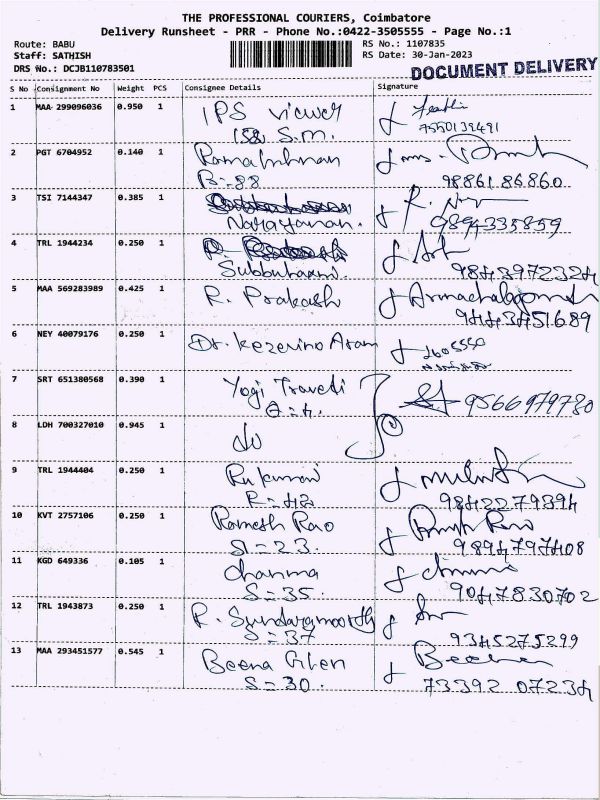 THE PROFESSIONAL COURIERS, Coimbatore
Delivery Runsheet - PRR - Phone No.:0422-3505555 - Page No.:1
Route: BABU
Staff: SATHISH
DRS No.: DCJB110783501
RS No.: 1107835
RS Date: 30-Jan-2023
DOCUMENT DELIVERY
S No Consignment No Weight PCS Consignee Details Signature
1 MAA 299096036 0.950 1 IPS viewer
S.M.
2 PGT 6704952 0.140 1
B=88 98861 86860
3 TSI 7144347 0.385 1
Narayanan. 9894335859
4 TRL 1944234 0.250 1
9843972324
5 MAA 569283989 0.425 1 R. Prakash
9443451689
6 NEY 40079176 0.250 1 Dr. Kezevino Aram 2605550
7 SRT 651380568 0.390 1 Yogi 9566979780
8 LDH 700327010 0.945 1
9 TRL 1944404 0.250 1 Rukumani
R=42 9842279394
10 KVT 2757106 0.250 1 Ramesh Rao
S1=23. 9894797408
11 KGD 649336 0.105 1
S=35. 9047830702
12 TRL 1943873 0.250 1 R. Sundaramoorthy
S=37 9345275299
13 MAA 293451577 0.545 1 Beena Glen
S=30. 73392 07234